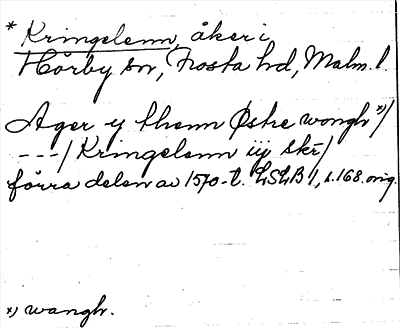 * Kringelenn, åker i,
Hörby sn, Frosta hd, Malm. l.
Ager y thenn Østre wongh *)/
---/ Kringelenn iij skr/
förra delen av 1570-t. LSLB 1, s. 168. orig.
*) wangh.